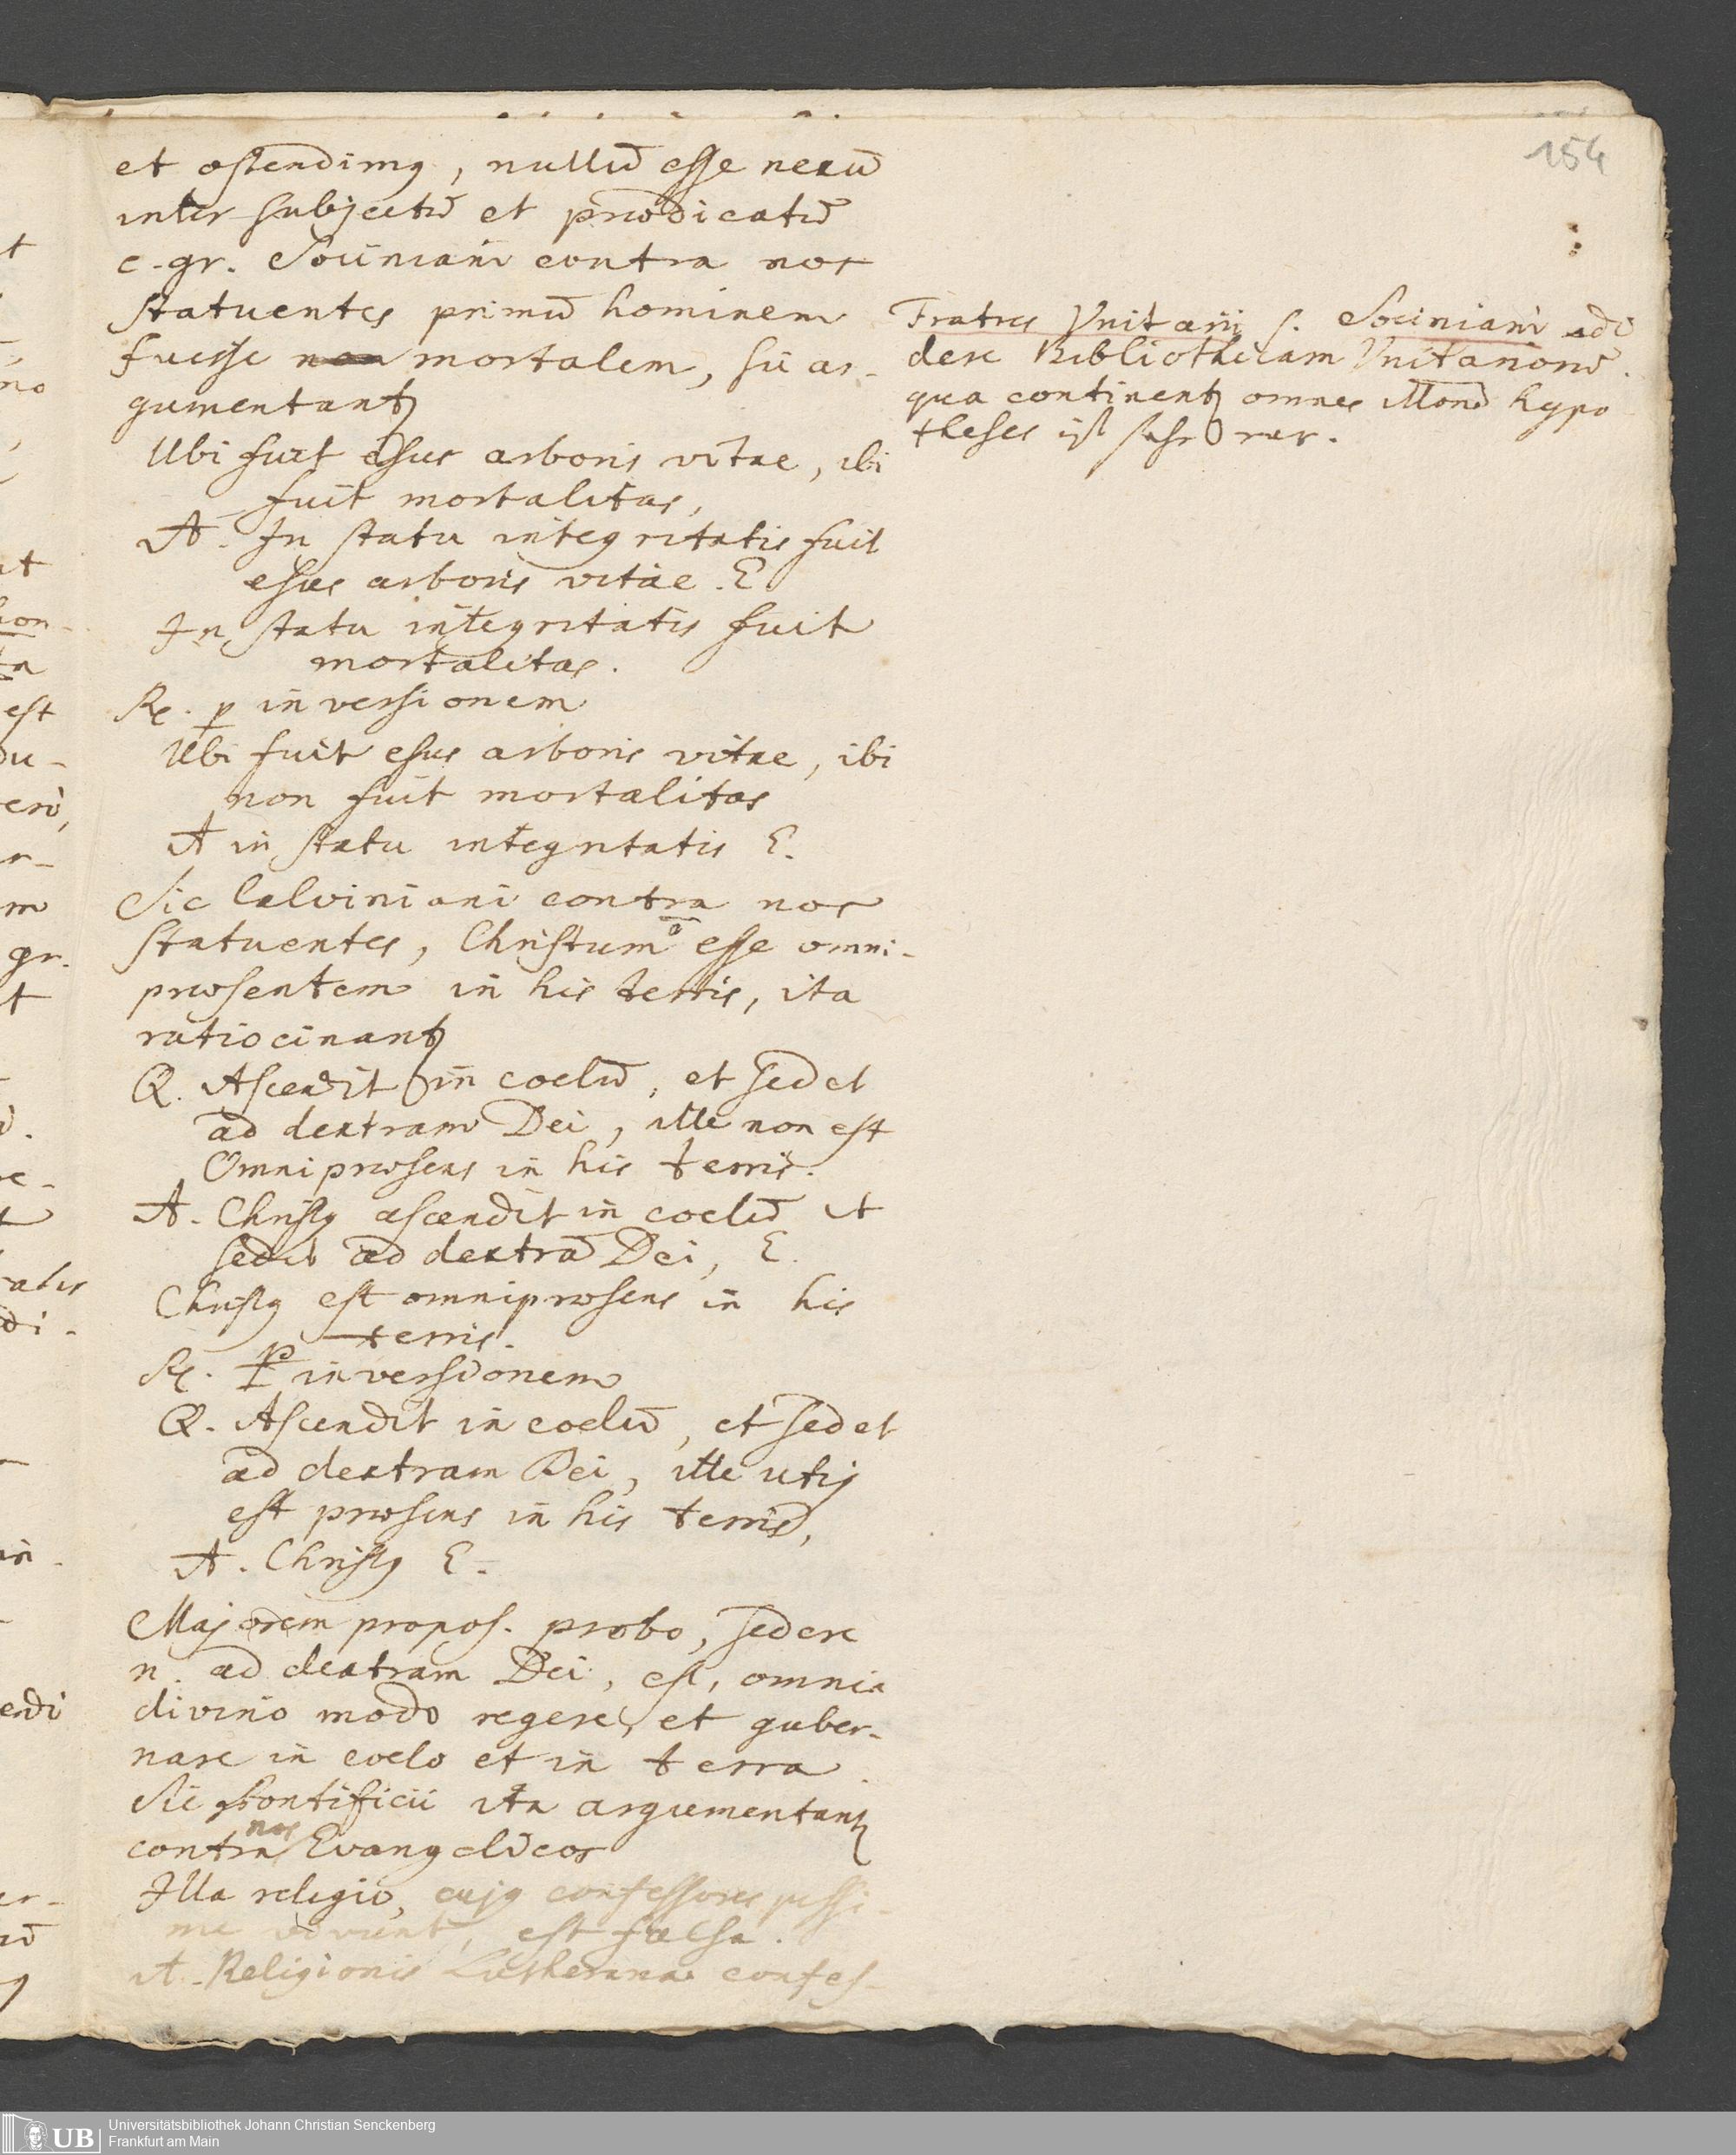 154
et ostendimꝰ, nullū esse nexū
inter subjectū et prædicatū
e. gr. Sociniani contra nos
statuentes primū hominem
fuisse non mortalem, sic ar-
gumentantꝰ
Ubi fuit esus arboris vitae, ibi
fuit mortalitas,
A. In statu integritatis fuit
esus arboris vitae. E
In statu integritatis fuit
mortalitas.
R. p inversionem
Ubi fuit esus arboris vitae, ibi
non fuit mortalitas
A in statu integritatis E.
Sic Calviniani contra nos
statuentes, Christum esse omni-
præsentem in his terris, ita
ratiocinantꝰ
Q. Ascendit in coelū, et sedet
ad dextram Dei, ille non est
Omnipræsens in his terris.
A. Christꝰ ascendit in coelū et
sedet ad dextrā Dei, E.
Christꝰ est omnipræsens in his
terris.
R. p inversionem
Q. Ascendit in coelū, et sedet
ad dextram Dei, ille utiq
est præsens in his terris,
A. Christꝰ E.
Majorem propos. probo, sedere
n. ad dextram Dei, est, omnia
divino modo regere, et guber-
nare in coelo et in terra.
Sic Pontificii ita argumentantꝰ
contra nos Evangelicos
Illa religio, cujꝰ confessores pessi-
me vivunt, est falsa.
A. Religionis Lutheranae confes-
Fratres Unitarii s. Sociniani edi
dere Bibliothecam Unitariorū.
qua continentꝰ omnes illorū hypo
theses ist sehr rar.